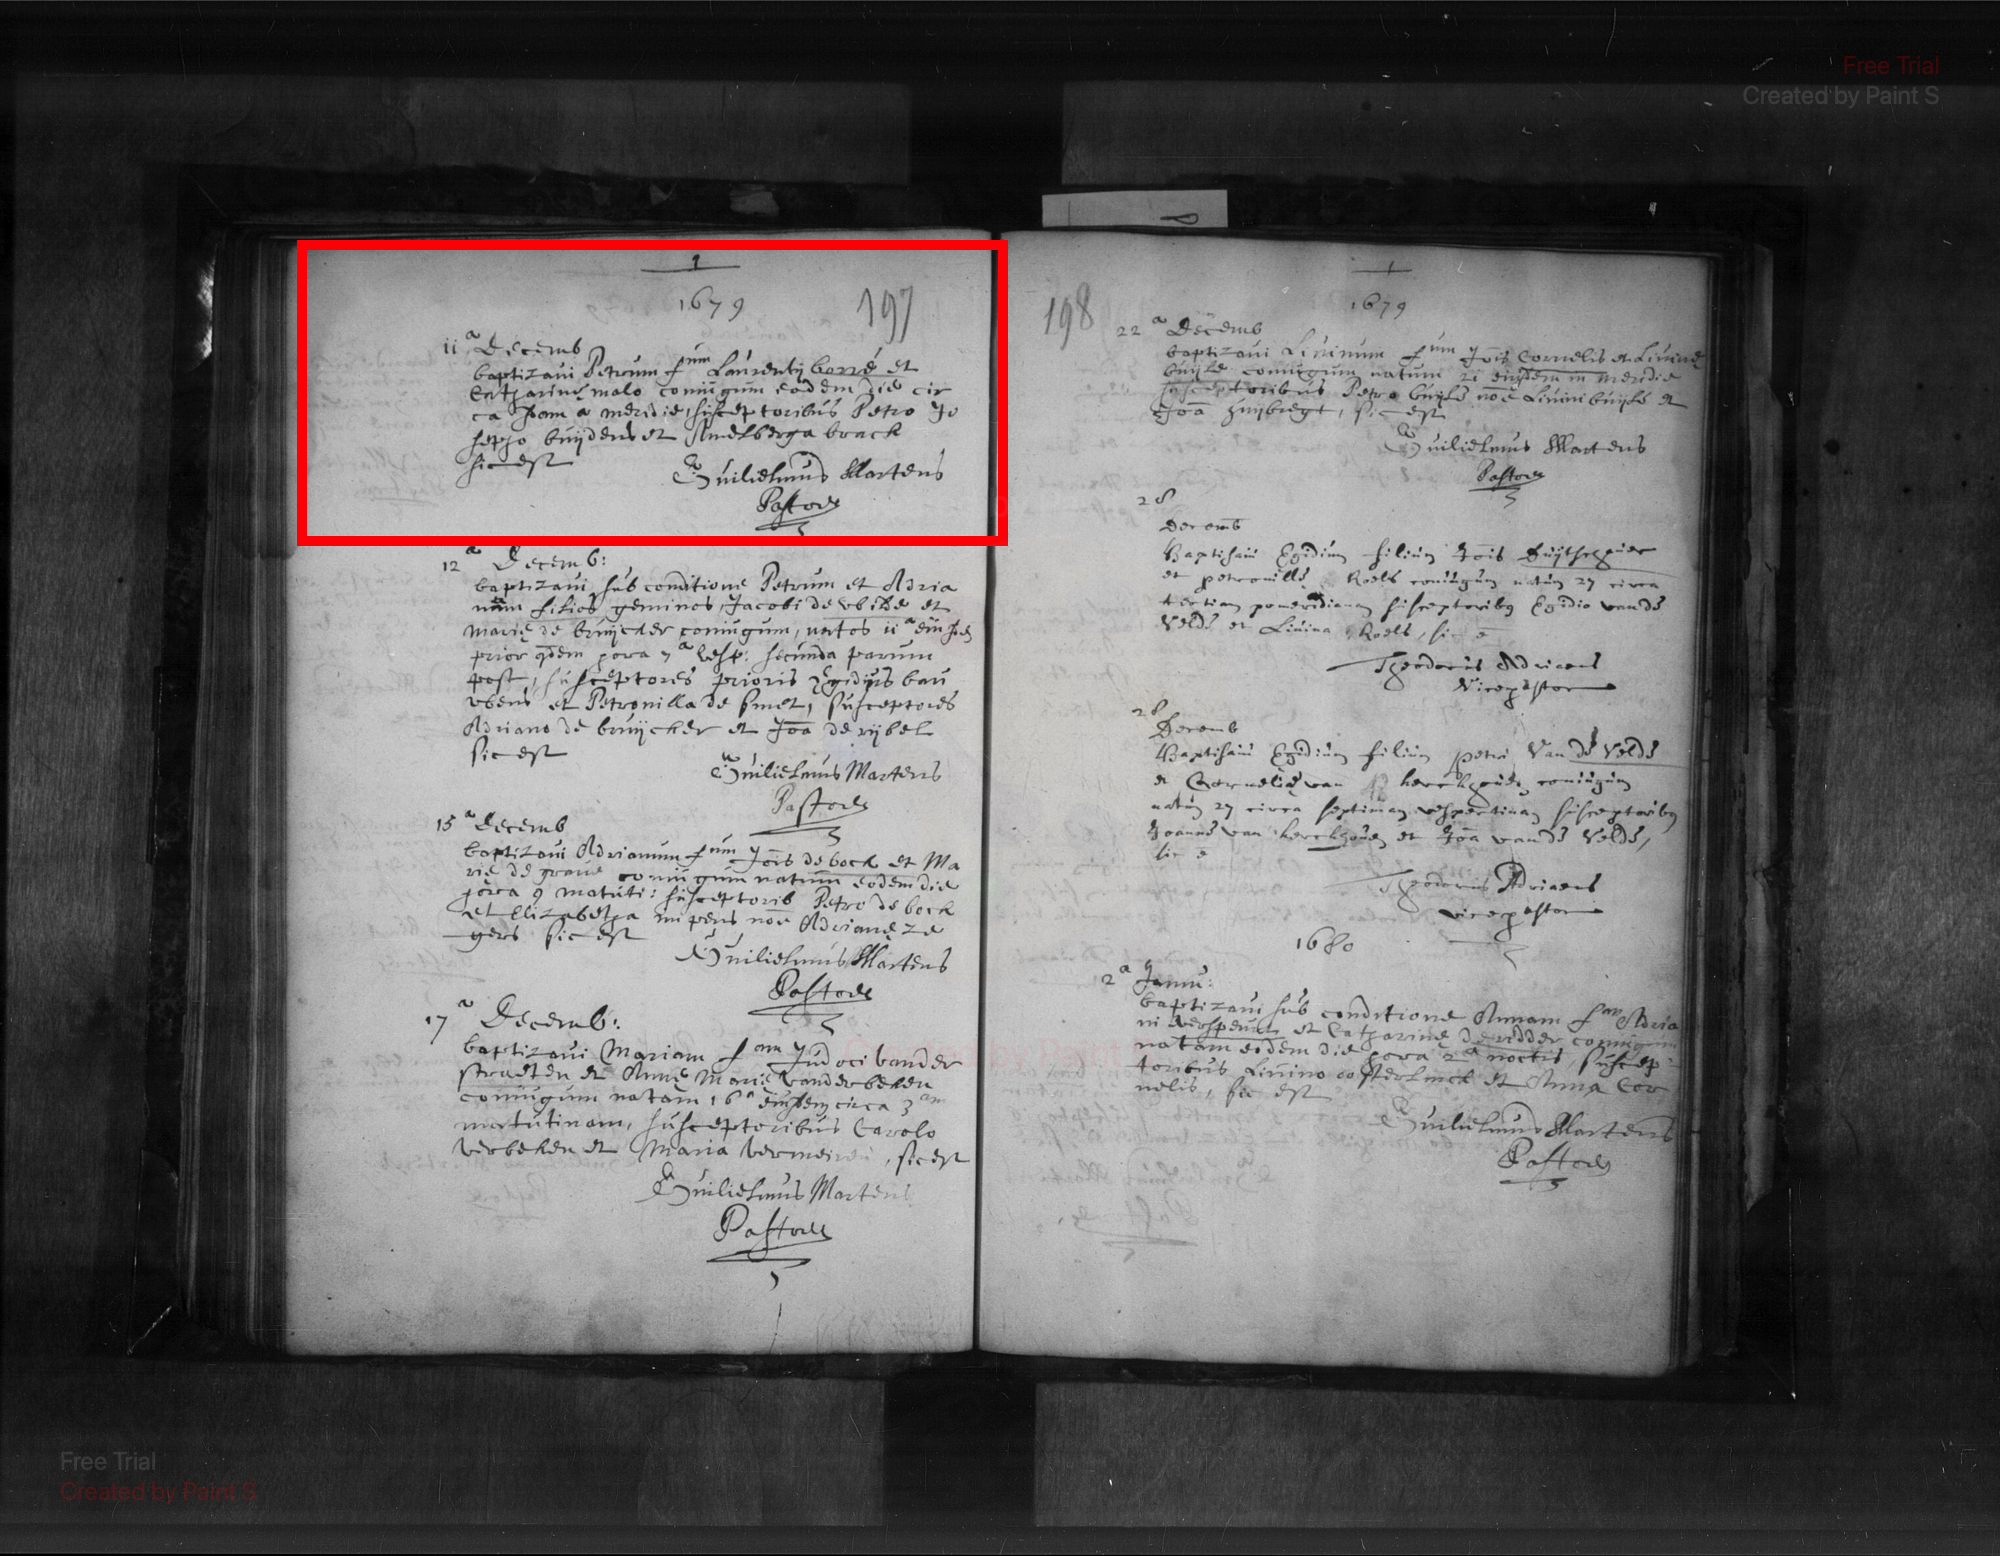 Free Trial
Created by Paint S
1
1679
197
11a Decemb
baptizavi Petrum fum Laurentij borré et
Catharinę malo coniugum eodem die cir
ca am a meridie, susceptoribus Petro Jo
sepho buijdens et Amelberga brack
sic est
Guilielmus Martens
Pastor
12a Decemb:
baptizavi sub conditione Petrum et Adria
num filios geminos Jacobi de et
Marię de bruijcker coniugum, natos 11a
prior hora 7a vesp: secunda parum
post, susceptores prioris Egidius bau
wens et Petronilla de smet, susceptores
Adriano de bruijcker et Joa de rijbel
sic est
Guilielmus Martens
Pastor
15a Decemb
baptizavi Adrianum fum Jois de bock et Ma
rię de grave coniugum natum eodem die
hora 9 matuti: susceptorib Petro de bock
et Elizabetha noē Adrianę ze
gers sic est
Guilielmus Martens
Pastor
17a Decemb:
baptizavi Mariam fam Judoci vander
straeten et Annę Marię vanderbeken
coniugum natam 16a circa 3am
matutinam, susceptoribus Carolo
verbeken et Maria vermeiren, sic est
Guilielmus Martens
Pastor
1
1679
198
22a Decemb
baptizavi Livinum fum Jois Cornelis et Livinę
buijle coniugum natum 21 meridie
susceptoribus Petro buijle noē Livini buijle et
Joa huijbregt, sic est
Guilielmus Martens
Pastor
28
Decemb
Baptisavi Egidium filium Jois
et petronillę Roels coniugum natum 27 circa
tertiam pomeridianam susceptoribus Egidio vande
Velde et Livina Roels, sic ē
Theodorus Adriaens
Vicepastor
28
Decemb
Baptisavi Egidium filium petri Van de Velde
et Cornelię van kerckhove coniugum
natum 27 circa septimam vespertinam susceptoribus
Joanne van kerckhoven et Joa vande Velde,
sic ē
Theodorus Adriaens
vicepastor
1680
2a Janu:
baptizavi sub conditione Annam fam Adria
ni et Catharinę de ridder coniugum
natam eodem die hora 2a noctis, suscep
toribus Livino oosterlinck et Anna Cor
nelis, sic est
Guilielmus Martens
Pastor
Free Trial
Created by Paint S